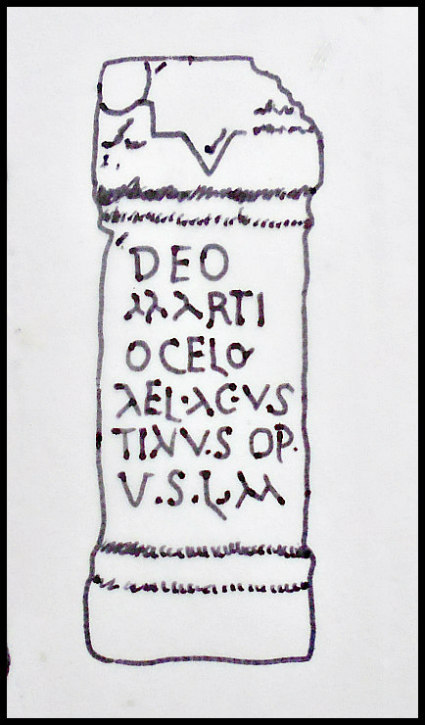 DEO
MARTI
OCELO
AEL·AG·VS
TINV·S OP·
V·S·L·M